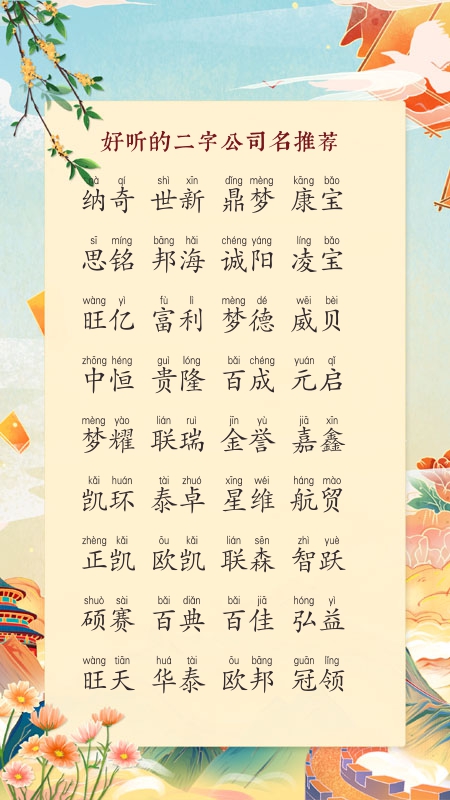 好听的二字公司名推荐
nà qí shì xīn dǐng mèng kāng bǎo
纳奇 世新 鼎梦 康宝
sī míng bāng hǎi chéng yáng líng bǎo
思铭 邦海 诚阳 凌宝
wàng yì fù lì mèng dé wēi bèi
旺亿 富利 梦德 威贝
zhōng héng guì lóng bǎi chéng yuán qǐ
中恒 贵隆 百成 元启
mèng yào lián ruì jīn yù jiā xīn
梦耀 联瑞 金誉 嘉鑫
kǎi huán tài zhuó xīng wéi háng mào
凯环 泰卓 星维 航贸
zhèng kǎi ōu kǎi lián sēn zhì yuè
正凯 欧凯 联森 智跃
shuò sài bǎi diǎn bǎi jiā hóng yì
硕赛 百典 百佳 弘益
wàng tiān huá tài ōu bāng guān lǐng
旺天 华泰 欧邦 冠领